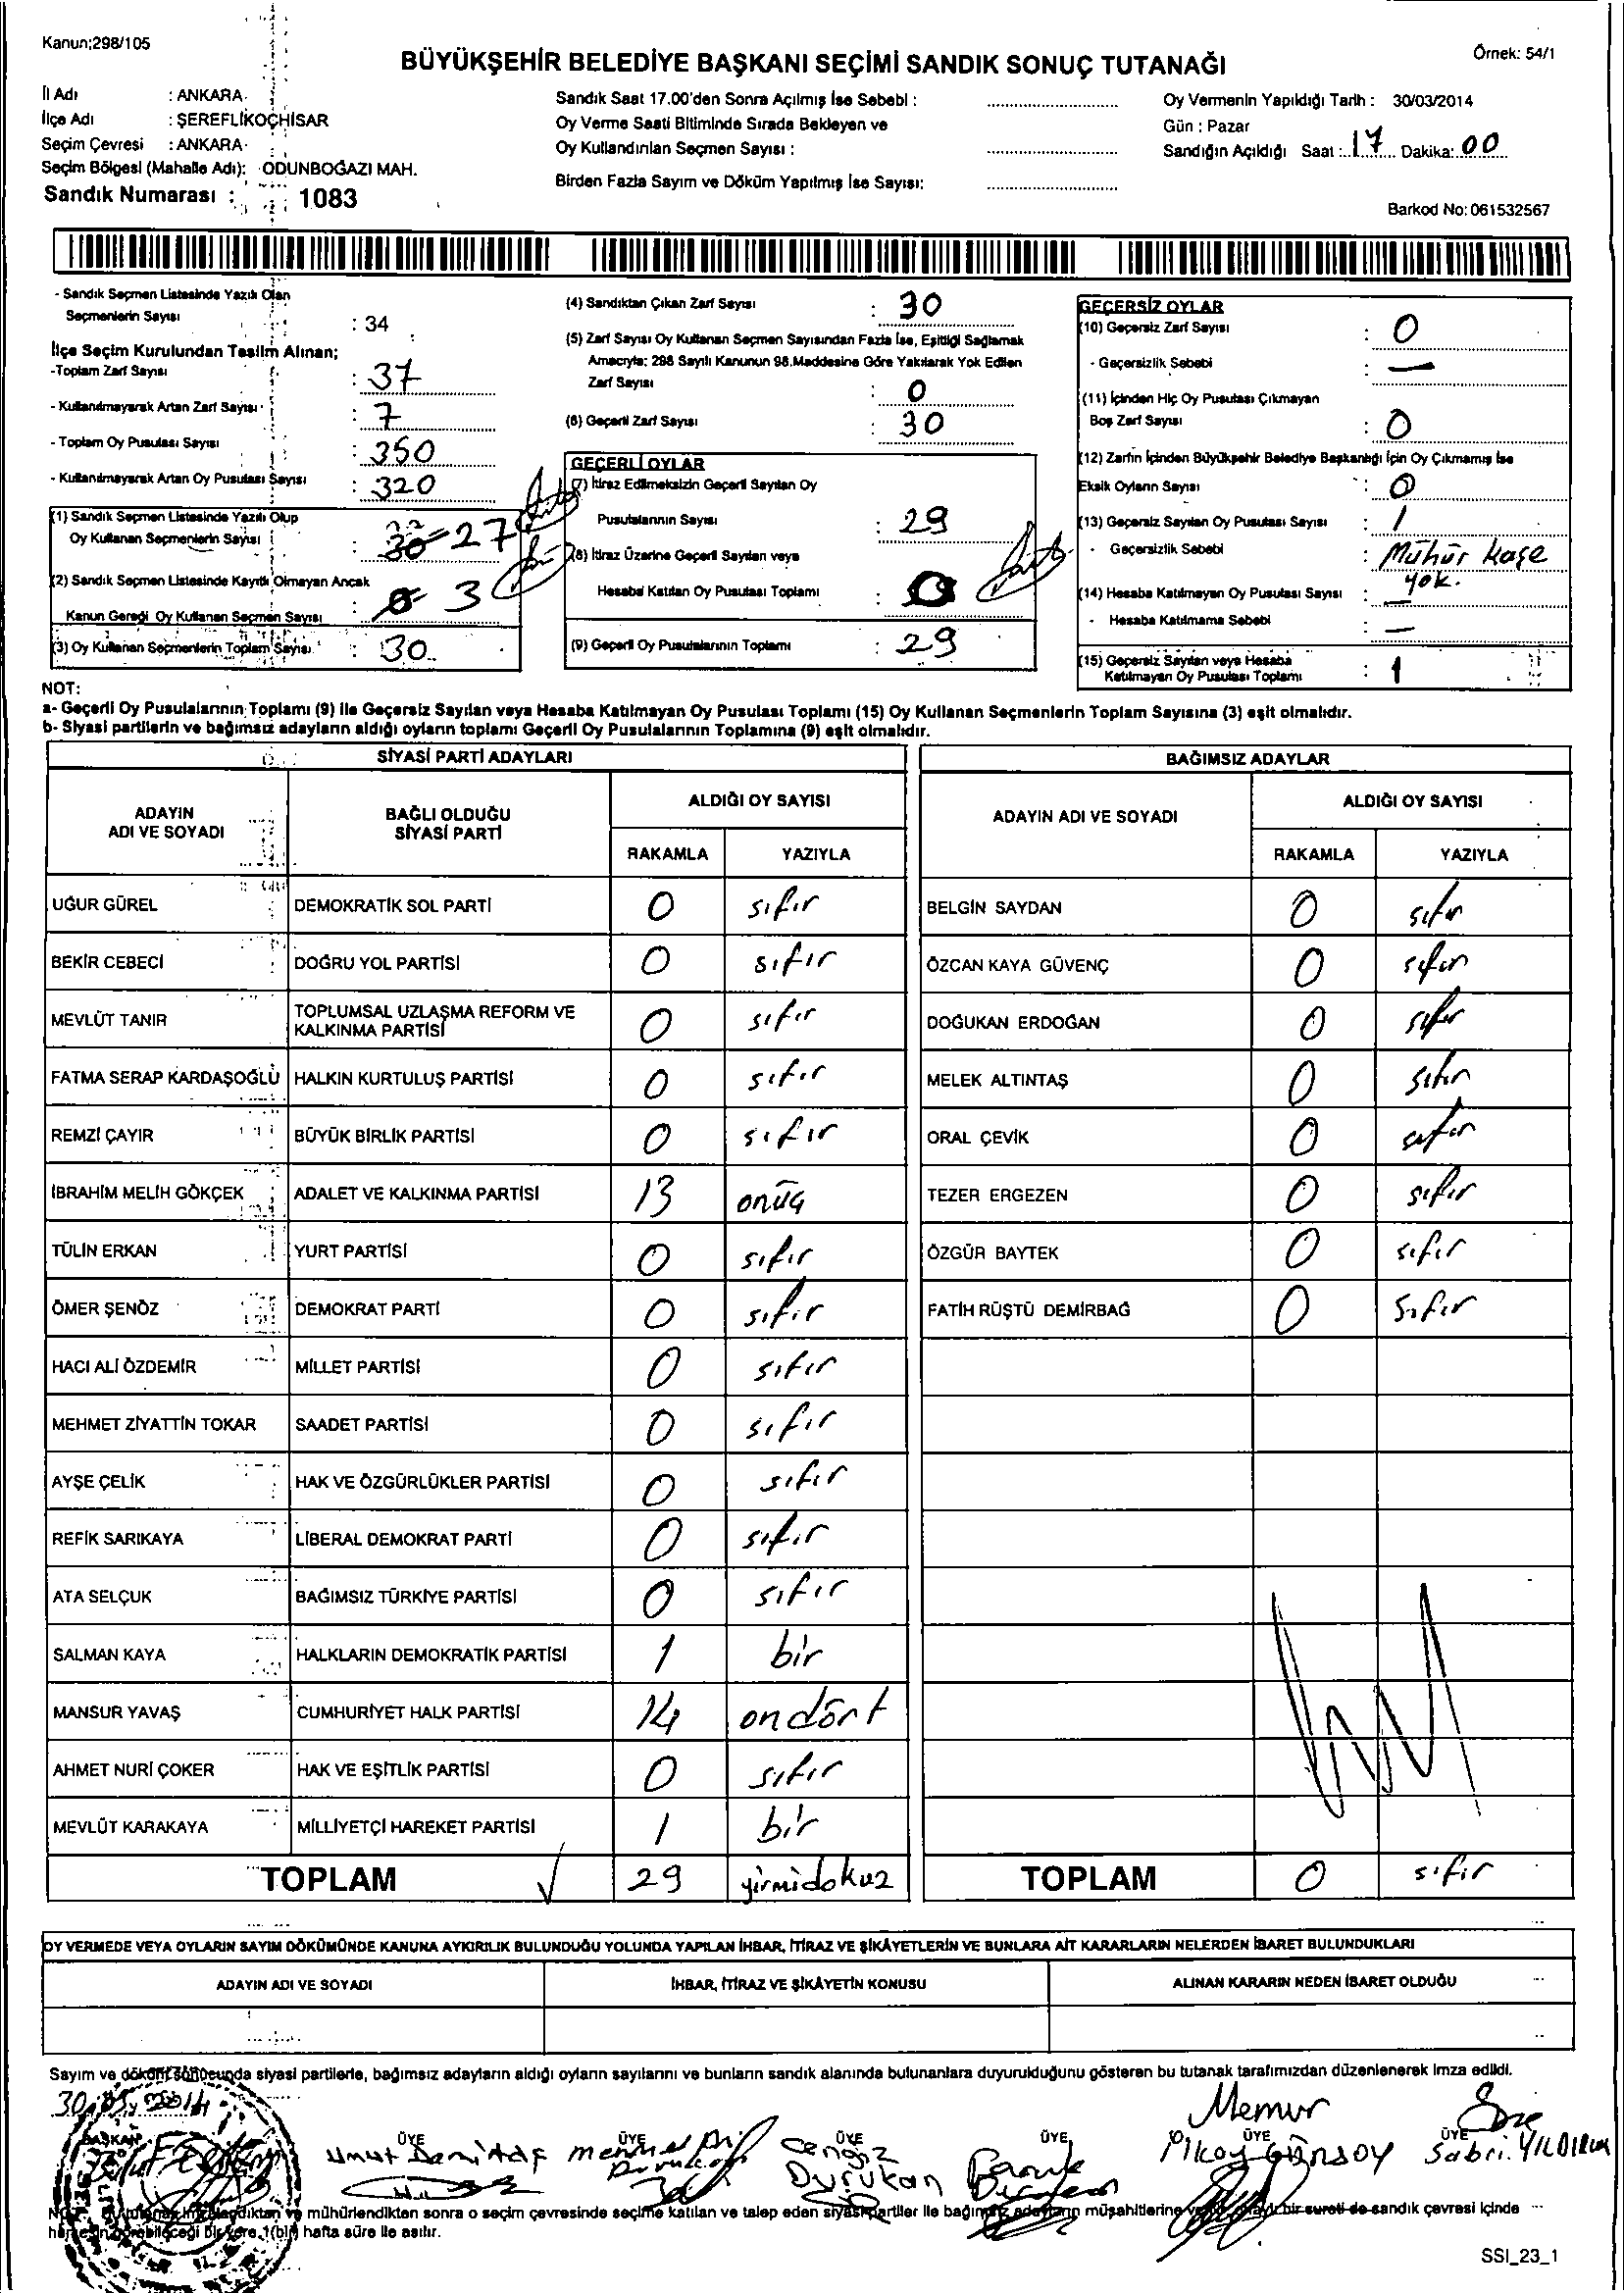 Kanun;298/105
Örnek: 54/1
BÜYÜKŞEHİR BELEDİYE BAŞKANI SEÇİMİ SANDIK SONUÇ TUTANAĞI
İl Adı : ANKARA
İlçe Adı : ŞEREFLİKOÇHİSAR
Seçim Çevresi : ANKARA
Seçim Bölgesi (Mahalle Adı): ODUNBOĞAZI MAH.
Sandık Numarası : 1083
Sandık Saat 17.00'den Sonra Açılmış İse Sebebi :
Oy Verme Saati Bitiminde Sırada Bekleyen ve
Oy Kullandırılan Seçmen Sayısı :
Birden Fazla Sayım ve Döküm Yapılmış İse Sayısı:
Oy Vermenin Yapıldığı Tarih : 30/03/2014
Gün : Pazar
Sandığın Açıldığı Saat : 17 Dakika: 00
Barkod No: 061532567
- Sandık Seçmen Listesinde Yazılı Olan
Seçmenlerin Sayısı : 34
İlçe Seçim Kurulundan Teslim Alınan;
-Toplam Zarf Sayısı : 37
- Kullanılmayarak Artan Zarf Sayısı : 7
- Toplam Oy Pusulası Sayısı : 350
- Kullanılmayarak Artan Oy Pusulası Sayısı : 320
(1) Sandık Seçmen Listesinde Yazılı Olup
Oy Kullanan Seçmenlerin Sayısı : 30 27
(2) Sandık Seçmen Listesinde Kayıtlı Olmayan Ancak
Kanun Gereği Oy Kullanan Seçmen Sayısı : 0 3
(3) Oy Kullanan Seçmenlerin Toplam Sayısı : 30
(4) Sandıktan Çıkan Zarf Sayısı : 30
(5) Zarf Sayısı Oy Kullanan Seçmen Sayısından Fazla İse, Eşitliği Sağlamak
Amacıyla; 298 Sayılı Kanunun 98.Maddesine Göre Yakılarak Yok Edilen
Zarf Sayısı : 0
(6) Geçerli Zarf Sayısı : 30
GEÇERLİ OYLAR
(7) İtiraz Edilmeksizin Geçerli Sayılan Oy
Pusulalarının Sayısı : 29
(8) İtiraz Üzerine Geçerli Sayılan veya
Hesaba Katılan Oy Pusulası Toplamı : 0
(9) Geçerli Oy Pusulalarının Toplamı : 29
GEÇERSİZ OYLAR
(10) Geçersiz Zarf Sayısı : 0
- Geçersizlik Sebebi : —
(11) İçinden Hiç Oy Pusulası Çıkmayan
Boş Zarf Sayısı : 0
(12) Zarfın İçinden Büyükşehir Belediye Başkanlığı İçin Oy Çıkmamış İse
Eksik Oyların Sayısı : 0
(13) Geçersiz Sayılan Oy Pusulası Sayısı : 1
- Geçersizlik Sebebi : Mühür kaşe
yok.
(14) Hesaba Katılmayan Oy Pusulası Sayısı : —
- Hesaba Katılmama Sebebi : —
(15) Geçersiz Sayılan veya Hesaba
Katılmayan Oy Pusulası Toplamı : 1
NOT:
a- Geçerli Oy Pusulalarının Toplamı (9) ile Geçersiz Sayılan veya Hesaba Katılmayan Oy Pusulası Toplamı (15) Oy Kullanan Seçmenlerin Toplam Sayısına (3) eşit olmalıdır.
b- Siyasi partilerin ve bağımsız adayların aldığı oyların toplamı Geçerli Oy Pusulalarının Toplamına (9) eşit olmalıdır.
SİYASİ PARTİ ADAYLARI
ADAYIN ADI VE SOYADI
BAĞLI OLDUĞU SİYASİ PARTİ
ALDIĞI OY SAYISI
RAKAMLA YAZIYLA
UĞUR GÜREL DEMOKRATİK SOL PARTİ 0 sıfır
BEKİR CEBECİ DOĞRU YOL PARTİSİ 0 sıfır
MEVLÜT TANIR TOPLUMSAL UZLAŞMA REFORM VE KALKINMA PARTİSİ 0 sıfır
FATMA SERAP KARDAŞOĞLU HALKIN KURTULUŞ PARTİSİ 0 sıfır
REMZİ ÇAYIR BÜYÜK BİRLİK PARTİSİ 0 sıfır
İBRAHİM MELİH GÖKÇEK ADALET VE KALKINMA PARTİSİ 13 onüç
TÜLİN ERKAN YURT PARTİSİ 0 sıfır
ÖMER ŞENÖZ DEMOKRAT PARTİ 0 sıfır
HACI ALİ ÖZDEMİR MİLLET PARTİSİ 0 sıfır
MEHMET ZİYATTİN TOKAR SAADET PARTİSİ 0 sıfır
AYŞE ÇELİK HAK VE ÖZGÜRLÜKLER PARTİSİ 0 sıfır
REFİK SARIKAYA LİBERAL DEMOKRAT PARTİ 0 sıfır
ATA SELÇUK BAĞIMSIZ TÜRKİYE PARTİSİ 0 sıfır
SALMAN KAYA HALKLARIN DEMOKRATİK PARTİSİ 1 bir
MANSUR YAVAŞ CUMHURİYET HALK PARTİSİ 14 ondört
AHMET NURİ ÇOKER HAK VE EŞİTLİK PARTİSİ 0 sıfır
MEVLÜT KARAKAYA MİLLİYETÇİ HAREKET PARTİSİ 1 bir
TOPLAM 29 yirmidokuz
BAĞIMSIZ ADAYLAR
ADAYIN ADI VE SOYADI
ALDIĞI OY SAYISI
RAKAMLA YAZIYLA
BELGİN SAYDAN 0 sıfır
ÖZCAN KAYA GÜVENÇ 0 sıfır
DOĞUKAN ERDOĞAN 0 sıfır
MELEK ALTINTAŞ 0 sıfır
ORAL ÇEVİK 0 sıfır
TEZER ERGEZEN 0 sıfır
ÖZGÜR BAYTEK 0 sıfır
FATİH RÜŞTÜ DEMİRBAĞ 0 sıfır
TOPLAM 0 sıfır
OY VERMEDE VEYA OYLARIN SAYIM DÖKÜMÜNDE KANUNA AYKIRILIK BULUNDUĞU YOLUNDA YAPILAN İHBAR, İTİRAZ VE ŞİKÂYETLERİN VE BUNLARA AİT KARARLARIN NELERDEN İBARET BULUNDUKLARI
ADAYIN ADI VE SOYADI
İHBAR, İTİRAZ VE ŞİKÂYETİN KONUSU
ALINAN KARARIN NEDEN İBARET OLDUĞU
Sayım ve döküm sonucunda siyasi partilerle, bağımsız adayların aldığı oyların sayılarını ve bunların sandık alanında bulunanlara duyurulduğunu gösteren bu tutanak tarafımızdan düzenlenerek imza edildi.
30.03.2014
BAŞKAN ÜYE ÜYE ÜYE ÜYE ÜYE ÜYE
Memur
Umut Cengiz Durukan İlkay Günsoy Sabri YILDIRIM
mühürlendikten sonra o seçim çevresinde seçime katılan ve talep eden siyasi partiler ile bağımsız adayların müşahitlerine bir sureti de sandık çevresi içinde
herkesin görebileceği bir yere 1(bir) hafta süre ile asılır.
SSI_23_1